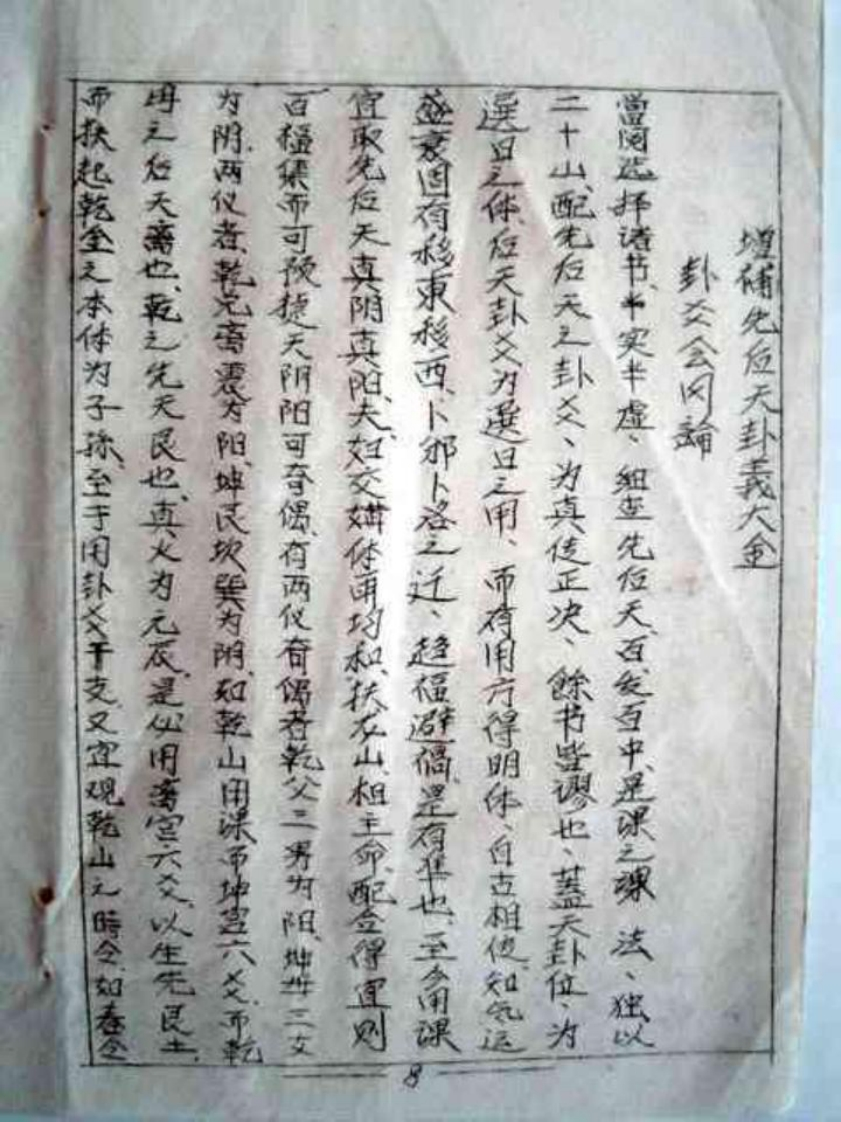 增补先后天卦义大全
卦爻会同論
當阅选择诸书、半实半虚、细查先后天、百发百中、是课之课法、独以
二十山、配先后天之卦爻、为真传正决、餘书皆謬也、蓋天卦位、为
選日之体、后天卦爻为選日之用、而存用方得明体、自古相传、知气运
盛衰固有移東移西、卜邪卜洛之迁、趋福避祸、是有准也、至今用课
宜取先后天真阴真阳、夫妇交媾、体用均和、扶龙山、相主命、配合得宜则
百福集而可预捷天阴阳可奇偶、有两仪奇偶者、乾父三男为阳、坤母三女
为阴、两仪者、乾兑离震为阳、坤艮坎巽为阴、如乾山用课而坤宫六爻、而乾
坤之后天離也、乾之先天艮也、真火为元辰、是必用離宫六爻、以生先艮土、
而扶起乾金之本体为子孫、至于用卦爻干支、又宜观乾山之時令、如春令
8